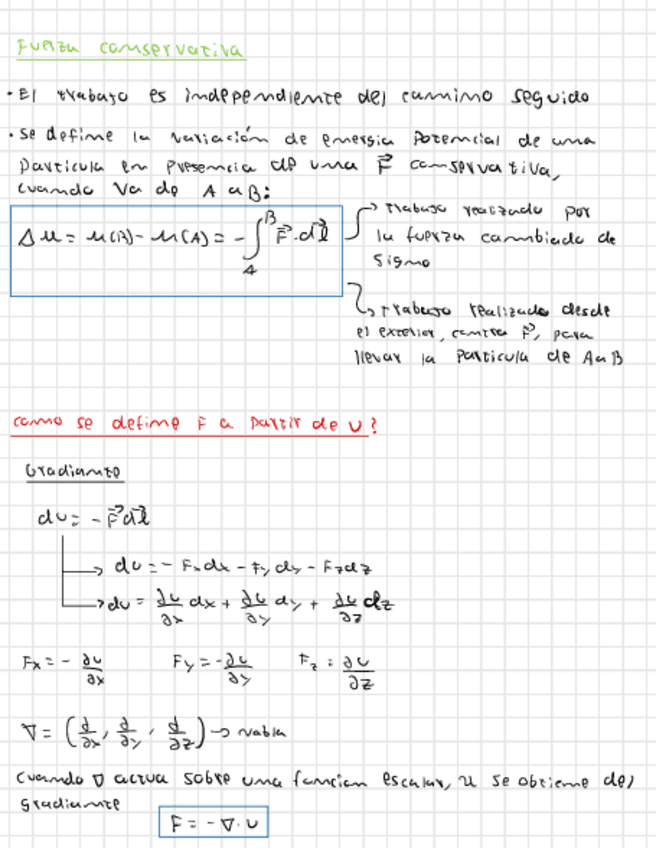 Fuerza conservativa
• El trabajo es independiente del camino seguido
• Se define la variación de energia potencial de una
particula en presencia de una F⃗ conservativa,
cuando va de A a B:
Δu = u(B) - u(A) = - ∫_A^B F⃗ · dl⃗
→ trabajo realizado por
la fuerza cambiado de
signo
↳ trabajo realizado desde
el exterior, contra F⃗, para
llevar la particula de A a B
como se define F a partir de U?
Gradiante
du = - F⃗ dl⃗
→ du = - Fx dx - Fy dy - Fz dz
→ du = ∂u/∂x dx + ∂u/∂y dy + ∂u/∂z dz
Fx = - ∂u/∂x    Fy = - ∂u/∂y    Fz = ∂u/∂z
∇ = (∂/∂x, ∂/∂y, ∂/∂z) → nabla
cuando ∇ actua sobre una funcion escalar, u se obtiene del
gradiante
F = - ∇ · U